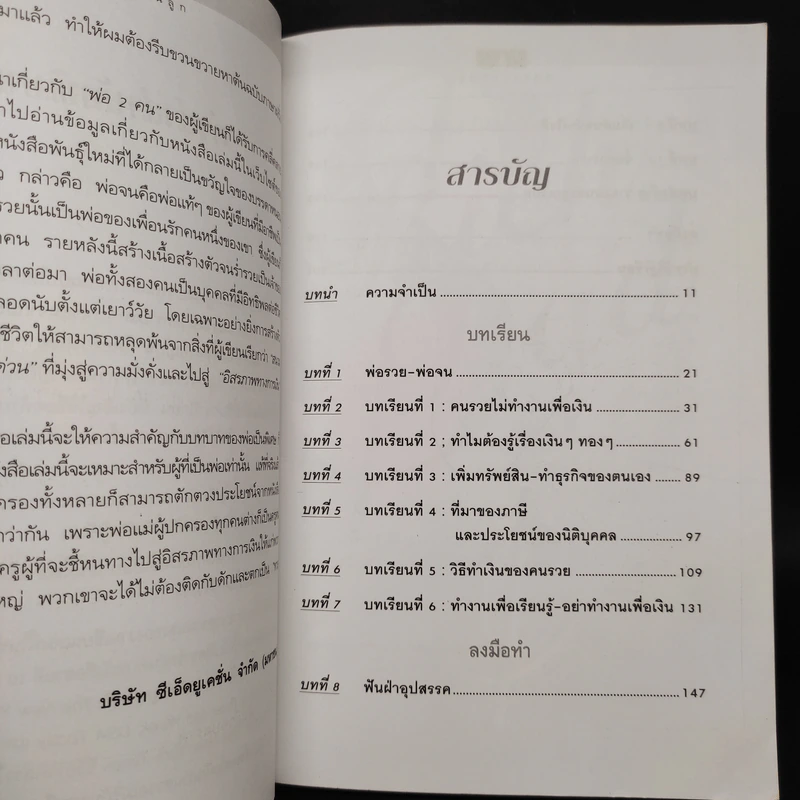 นลูก
มาแล้ว ทำให้ผมต้องรีบขวนขวายหาต้นฉบับภาษา
นาเกี่ยวกับ “พ่อ 2 คน” ของผู้เขียนก็ได้รับการ
าไปอ่านข้อมูลเกี่ยวกับหนังสือเล่มนี้ในเว็บไซต์
หนังสือพันธุ์ใหม่ที่ได้กลายเป็นขวัญใจของบรรดา
ว กล่าวคือ พ่อจนคือพ่อแท้ๆ ของผู้เขียนที่มีอาชีพ
รวยนั้นเป็นพ่อของเพื่อนรักคนหนึ่งของเขา ซึ่งผู้เขียน
คน รายหลังนี้สร้างเนื้อสร้างตัวจนร่ำรวยเป็น
ลาต่อมา พ่อทั้งสองคนเป็นบุคคลที่มีอิทธิพลต่อ
ลอดนับตั้งแต่เยาว์วัย โดยเฉพาะอย่างยิ่งการสร้าง
ชีวิตให้สามารถหลุดพ้นจากสิ่งที่ผู้เขียนเรียกว่า
ด่วน” ที่มุ่งสู่ความมั่งคั่งและไปสู่ “อิสรภาพทางการเงิน
อเล่มนี้จะให้ความสำคัญกับบทบาทของพ่อเป็นพิเศษ
งสือเล่มนี้จะเหมาะสำหรับผู้ที่เป็นพ่อเท่านั้น
ครองทั้งหลายก็สามารถตักตวงประโยชน์จาก
กว่ากัน เพราะพ่อแม่ผู้ปกครองทุกคนต่างก็เป็น
ครูผู้ที่จะชี้หนทางไปสู่อิสรภาพทางการเงินให้
หญ่ พวกเขาจะได้ไม่ต้องติดกับดักและตกเป็น
บริษัท ซีเอ็ดยูเคชั่น จำกัด (มหาชน
สารบัญ
บทนำ ความจำเป็น 11
บทเรียน
บทที่ 1 พ่อรวย-พ่อจน 21
บทที่ 2 บทเรียนที่ 1 : คนรวยไม่ทำงานเพื่อเงิน 31
บทที่ 3 บทเรียนที่ 2 ; ทำไมต้องรู้เรื่องเงินๆ ทองๆ 61
บทที่ 4 บทเรียนที่ 3 : เพิ่มทรัพย์สิน-ทำธุรกิจของตนเอง 89
บทที่ 5 บทเรียนที่ 4 : ที่มาของภาษี
และประโยชน์ของนิติบุคคล 97
บทที่ 6 บทเรียนที่ 5 : วิธีทำเงินของคนรวย 109
บทที่ 7 บทเรียนที่ 6 : ทำงานเพื่อเรียนรู้-อย่าทำงานเพื่อเงิน 131
ลงมือทำ
บทที่ 8 ฟันฝ่าอุปสรรค 147